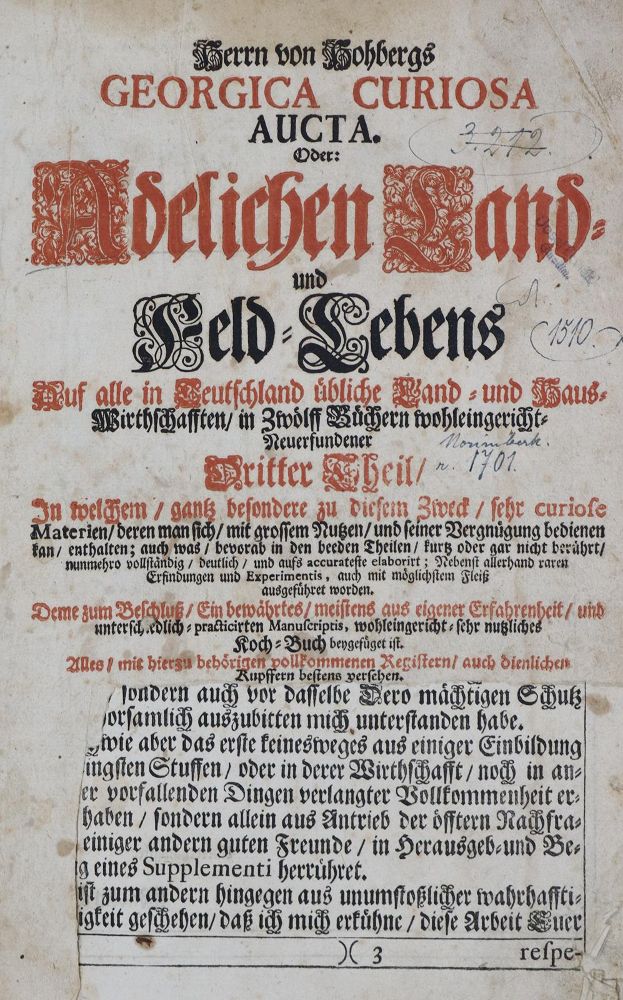 Herrn von Hohbergs
GEORGICA CURIOSA
AUCTA.
Oder:
3.212.
Adelichen Land-
und
Feld-Lebens
1510.
Auf alle in Teutschland übliche Land- und Haus-
Wirthschafften/ in Zwölff Büchern wohleingericht-
Neuerfundener
Norimberk.
Dritter Theil/
n. 1701.
In welchem/ gantz besondere zu diesem Zweck/ sehr curiose
Materien/ deren man sich/ mit grossem Nutzen/ und seiner Vergnügung bedienen
kan/ enthalten; auch was/ bevorab in den beeden Theilen/ kurtz oder gar nicht berührt/
nunmehro vollständig/ deutlich/ und aufs accurateste elaborirt; Nebenst allerhand raren
Erfindungen und Experimentis, auch mit möglichstem Fleiß
ausgeführet worden.
Deme zum Beschluß/ Ein bewährtes/ meistens aus eigener Erfahrenheit/ und
untersch edlich-practicirten Manuscriptis, wohleingericht-sehr nutzliches
Koch-Buch beygefüget ist.
Alles/ mit hierzu behörigen vollkommenen Registern/ auch dienlichen
Kupffern bestens versehen.
/ sondern auch vor dasselbe Dero mächtigen Schutz
orsamlich auszubitten mich unterstanden habe.
wie aber das erste keinesweges aus einiger Einbildung
ingsten Stuffen/ oder in derer Wirthschafft/ noch in an-
er vorfallenden Dingen verlangter Vollkommenheit er-
haben/ sondern allein aus Antrieb der öfftern Nachfra-
einiger andern guten Freunde/ in Herausgeb-und Be-
g eines Supplementi herrühret.
ist zum andern hingegen aus unumstoßlicher wahrhaffti-
igkeit geschehen/ daß ich mich erkühne/ diese Arbeit Euer
)( 3
respe-